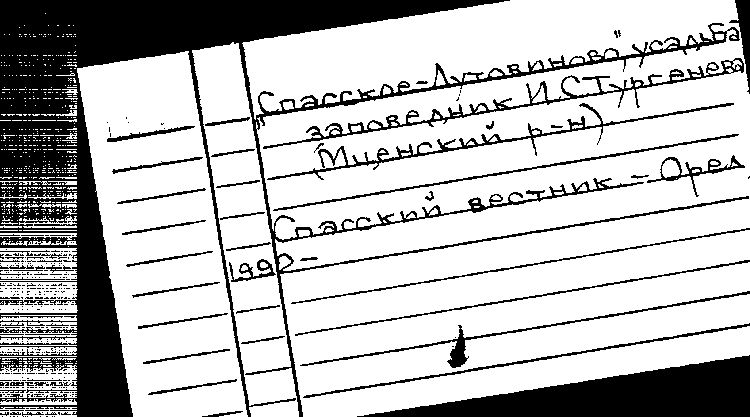 „Спасское-Лутовиново", усадьба
заповедник И.С.Тургенева
(Мценский р-н)
Спасский вестник. – Орел,
1992 –